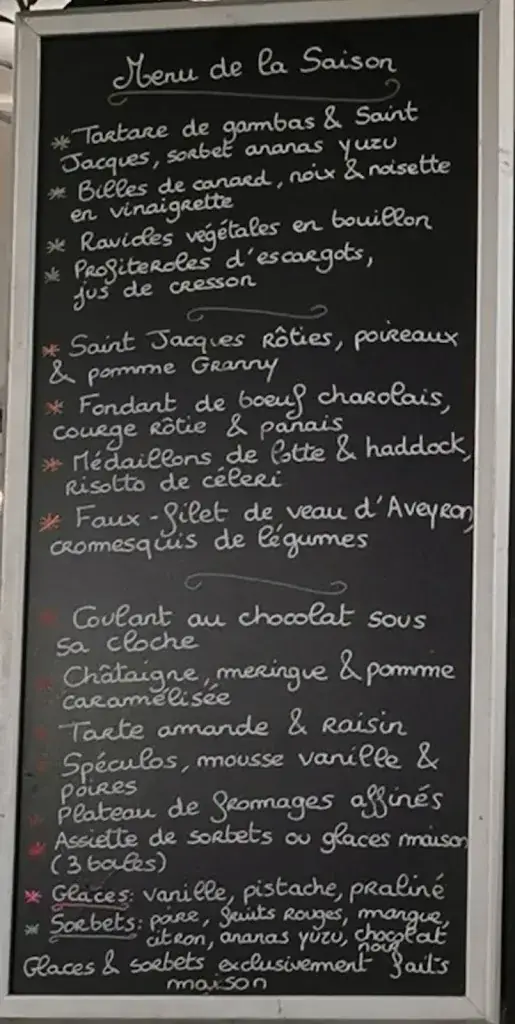 Menu de la Saison
* Tartare de gambas & Saint
Jacques, sorbet ananas yuzu
* Billes de canard, noix & noisette
en vinaigrette
* Ravioles végétales en bouillon
* Profiteroles d'escargots,
jus de cresson
* Saint Jacques Rôties, poireaux
& pomme Granny
* Fondant de boeuf charolais,
courge rôtie & panais
* Médaillons de lotte & haddock,
Risotto de céleri
* Faux-filet de veau d'Aveyron,
cromesquis de légumes
* Coulant au chocolat sous
sa cloche
* Châtaigne, meringue & pomme
caramélisée
* Tarte amande & Raisin
* Spéculos, mousse vanille &
poires
* Plateau de fromages affinés
* Assiette de sorbets ou glaces maison
(3 boules)
* Glaces: vanille, pistache, praliné
* Sorbets: poire, fruits Rouges, mangue,
citron, ananas yuzu, chocolat
noir
Glaces & sorbets exclusivement faits
maison